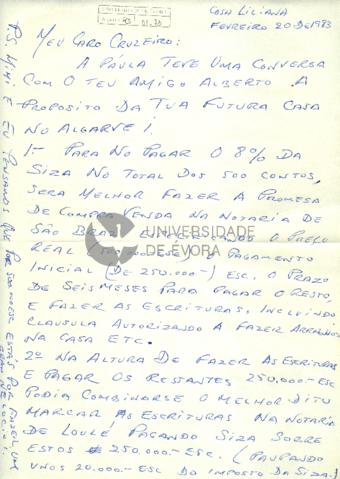 Casa Liliana
Fevereiro 20 de 1983
Meu caro Cruzeiro:
A Paula teve uma conversa
com o teu amigo Alberto a
proposito da tua futura casa
no Algarve!
1º- Para no pagar o 8% da
siza no total dos 500 contos,
sera melhor fazer a promesa
de compra venda na notaria de
São Braz
o preço
real
pagamento
inicial (de 250.000-) esc. o prazo
de seis meses para pagar o resto,
e fazer as escrituras. Incluindo
clausula autorizando a fazer
na casa etc.
2º Na altura de fazer as escrituras
e pagar os restantes 250.000-esc
podia combinarse o melhor di tu
marcar as escrituras na notaria
de Loulé pagando siza sobre
estos 250.000-esc. (
unos 20.000-esc do imposto da siza.)
P.S. Mimi e eu pensamos que por
estás por fazer um
UNIVERSIDADE
DE ÉVORA